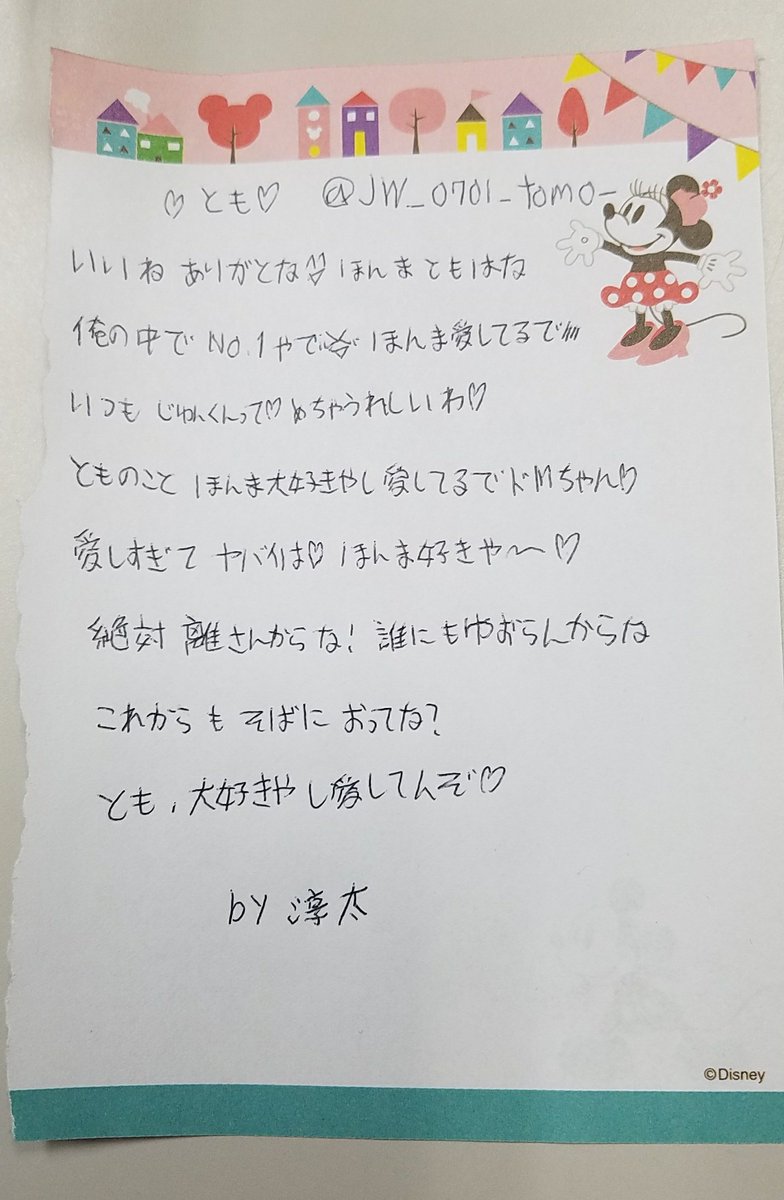 ♡とも♡ @JW_0701_tomo_
いいね ありがとな♡ ほんま ともはな
俺の中で No.1やで ほんま愛してるで
いつも じゅんくんって♡ めちゃうれしいわ♡
とものこと ほんま大好きやし愛してるで ドMちゃん♡
愛しすぎて ヤバイは♡ ほんま好きや〜♡
絶対 離さんからな! 誰にもゆおらんからな
これからも そばに おってな?
とも、大好きやし愛してんぞ♡
by 淳太
©Disney